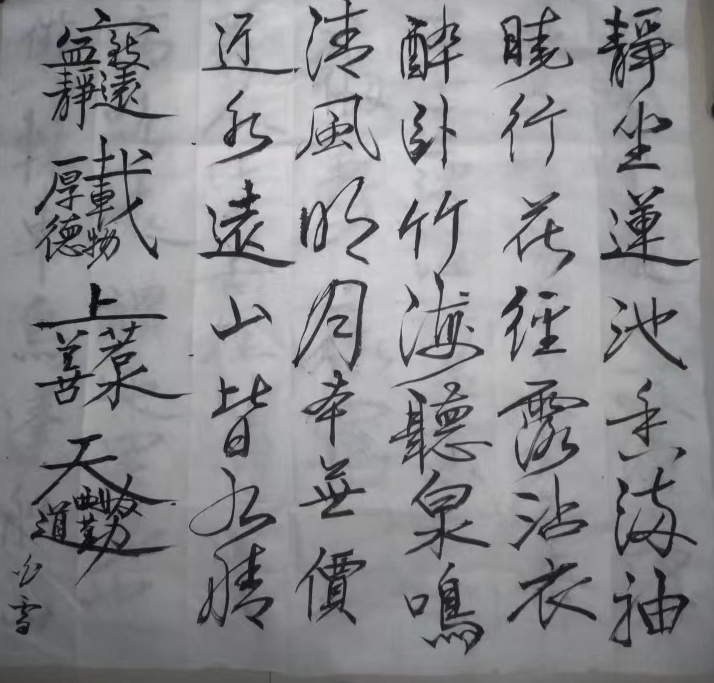 靜坐蓮池香滿袖
曉行花徑露沾衣
醉卧竹海聽泉鳴
清風明月本無價
近水遠山皆有情
寧靜致遠
厚德載物
上善若水
天道酬勤
白雪